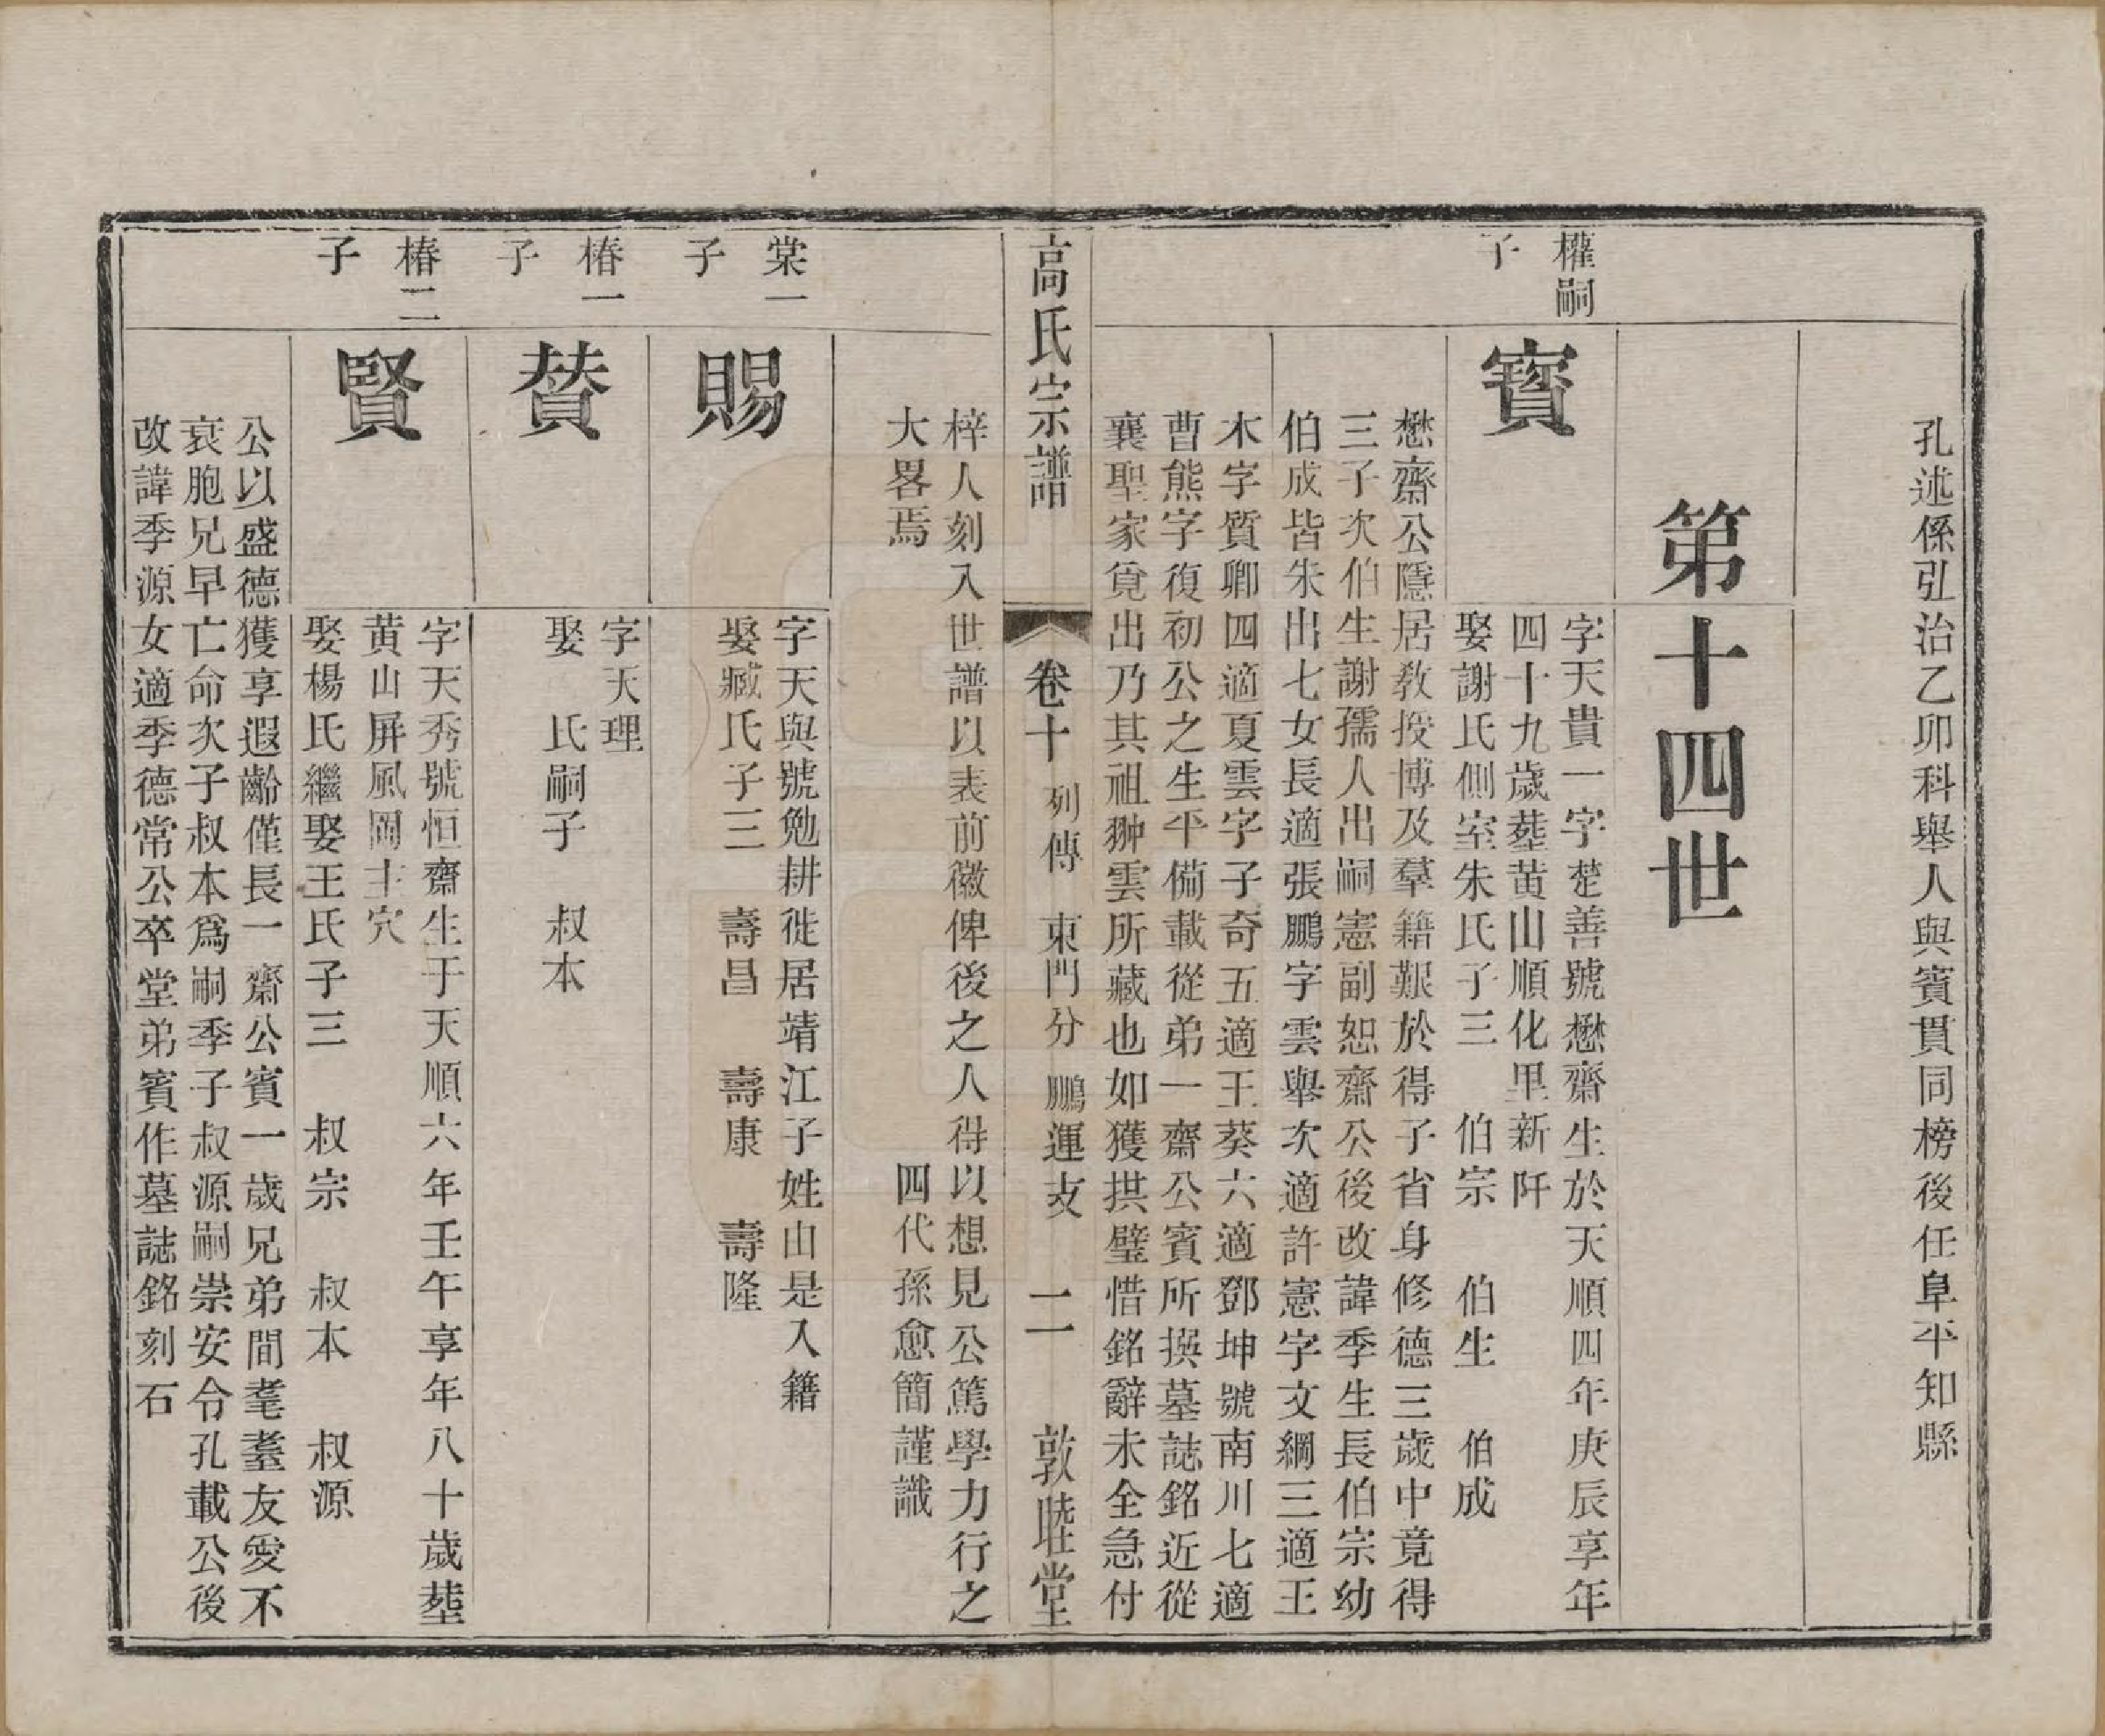 孔述係弘治乙卯科舉人與賓貫同榜後任阜平知縣
第十四世
權嗣
子
賓
字天貴一字楚善號懋齋生於天順四年庚辰享年
四十九歲葬黃山順化里新阡
娶謝氏側室朱氏子三　伯宗　伯生　伯成
懋齋公隱居教授博及羣籍艱於得子省身修德三歲中竟得
三子次伯生謝孺人出嗣憲副恕齋公後改諱季生長伯宗幼
伯成皆朱出七女長適張鵬字雲舉次適許憲字文綱三適王
木字質卿四適夏雲字子奇五適王葵六適鄧坤號南川七適
曹熊字復初公之生平備載從弟一齋公賓所撰墓誌銘近從
襄聖家覓出乃其祖翀雲所藏也如獲拱璧惜銘辭未全急付
高氏宗譜
卷十　列傳　東門分　鵬運支　二　敦睦堂
梓人刻入世譜以表前徽俾後之人得以想見公篤學力行之
大畧焉
四代孫愈簡謹識
棠一
子
賜
字天與號勉耕徙居靖江子姓山是入籍
娶臧氏子三　壽昌　壽康　壽隆
椿一
子
贊
字天理
娶　氏嗣子　叔本
椿二
子
賢
字天秀號恒齋生于天順六年壬午享年八十歲葬
黃山屏風岡主穴
娶楊氏繼娶王氏子三　叔宗　叔本　叔源
公以盛德獲享遐齡僅長一齋公賓一歲兄弟間耄耋友愛不
衰胞兄早亡命次子叔本爲嗣季子叔源嗣崇安令孔載公後
改諱季源女適季德常公卒堂弟賓作墓誌銘刻石